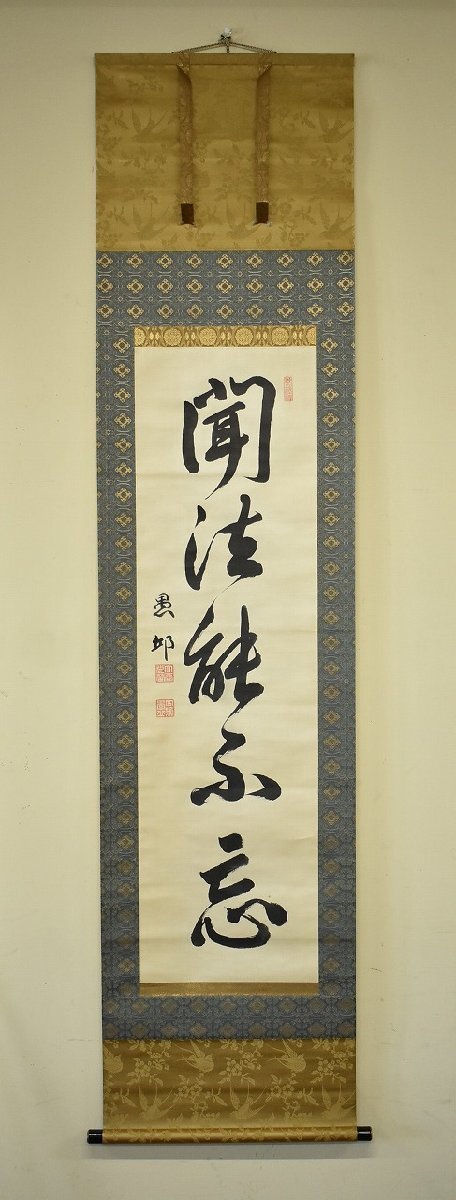 聞法能不忘
愚邱